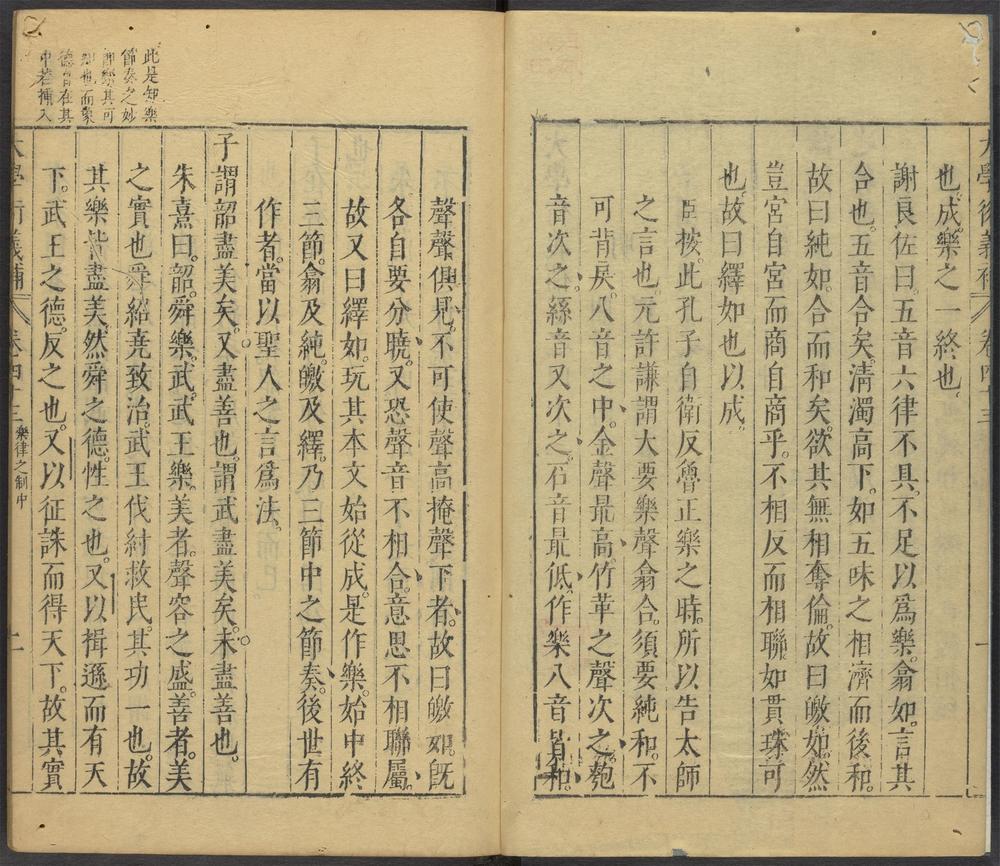 大學衍義補 卷四十三
也成樂之一終也
謝良佐曰五音六律不具不足以爲樂翕如言其
合也五音合矣清濁高下如五味之相濟而後和
故曰純如合而和矣欲其無相奪倫故曰皦如然
豈宮自宮而商自商乎不相反而相聯如貫珠可
也故曰繹如也以成
臣按此孔子自衛反魯正樂之時所以告太師
之言也元許謙謂大要樂聲翕合須要純和不
可背戾八音之中金聲最高竹革之聲次之匏
音次之絲音又次之石音最低作樂八音皆和
聲聲俱見不可使聲高掩聲下者故曰皦如旣
各自要分曉又恐聲音不相合意思不相聯屬
故又曰繹如玩其本文始從成是作樂始中終
三節翕及純皦及繹乃三節中之節奏後世有
作者當以聖人之言爲法
子謂韶盡美矣又盡善也謂武盡美矣未盡善也
朱熹曰韶舜樂武武王樂美者聲容之盛善者美
之實也舜紹堯致治武王伐紂救民其功一也故
其樂皆盡美然舜之德性之也又以揖遜而有天
下武王之德反之也又以征誅而得天下故其實
大學衍義補 卷四十三 樂律之制中 二
此是知樂
節奏之妙
德音在其
中若插入